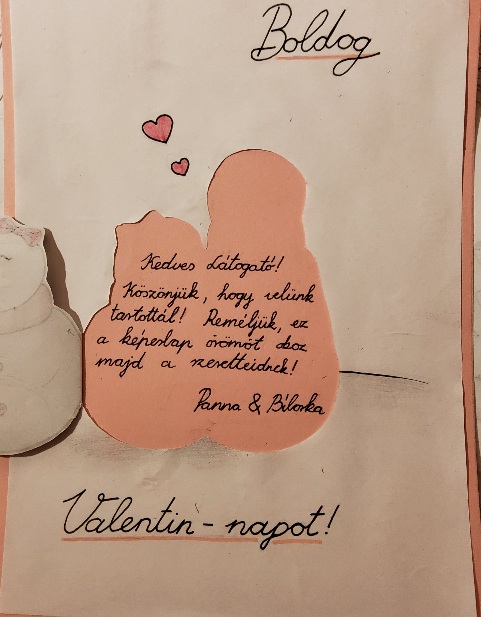 Boldog
Kedves Látogató!
Köszönjük, hogy velünk
tartottál! Reméljük, ez
a képeslap örömöt okoz
majd a szeretteidnek!
Panna & Biborka
Valentin-napot!